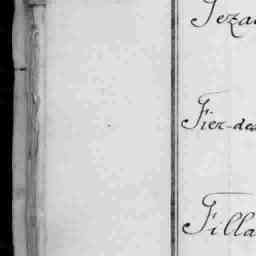 Teza
Fier-des
Filla